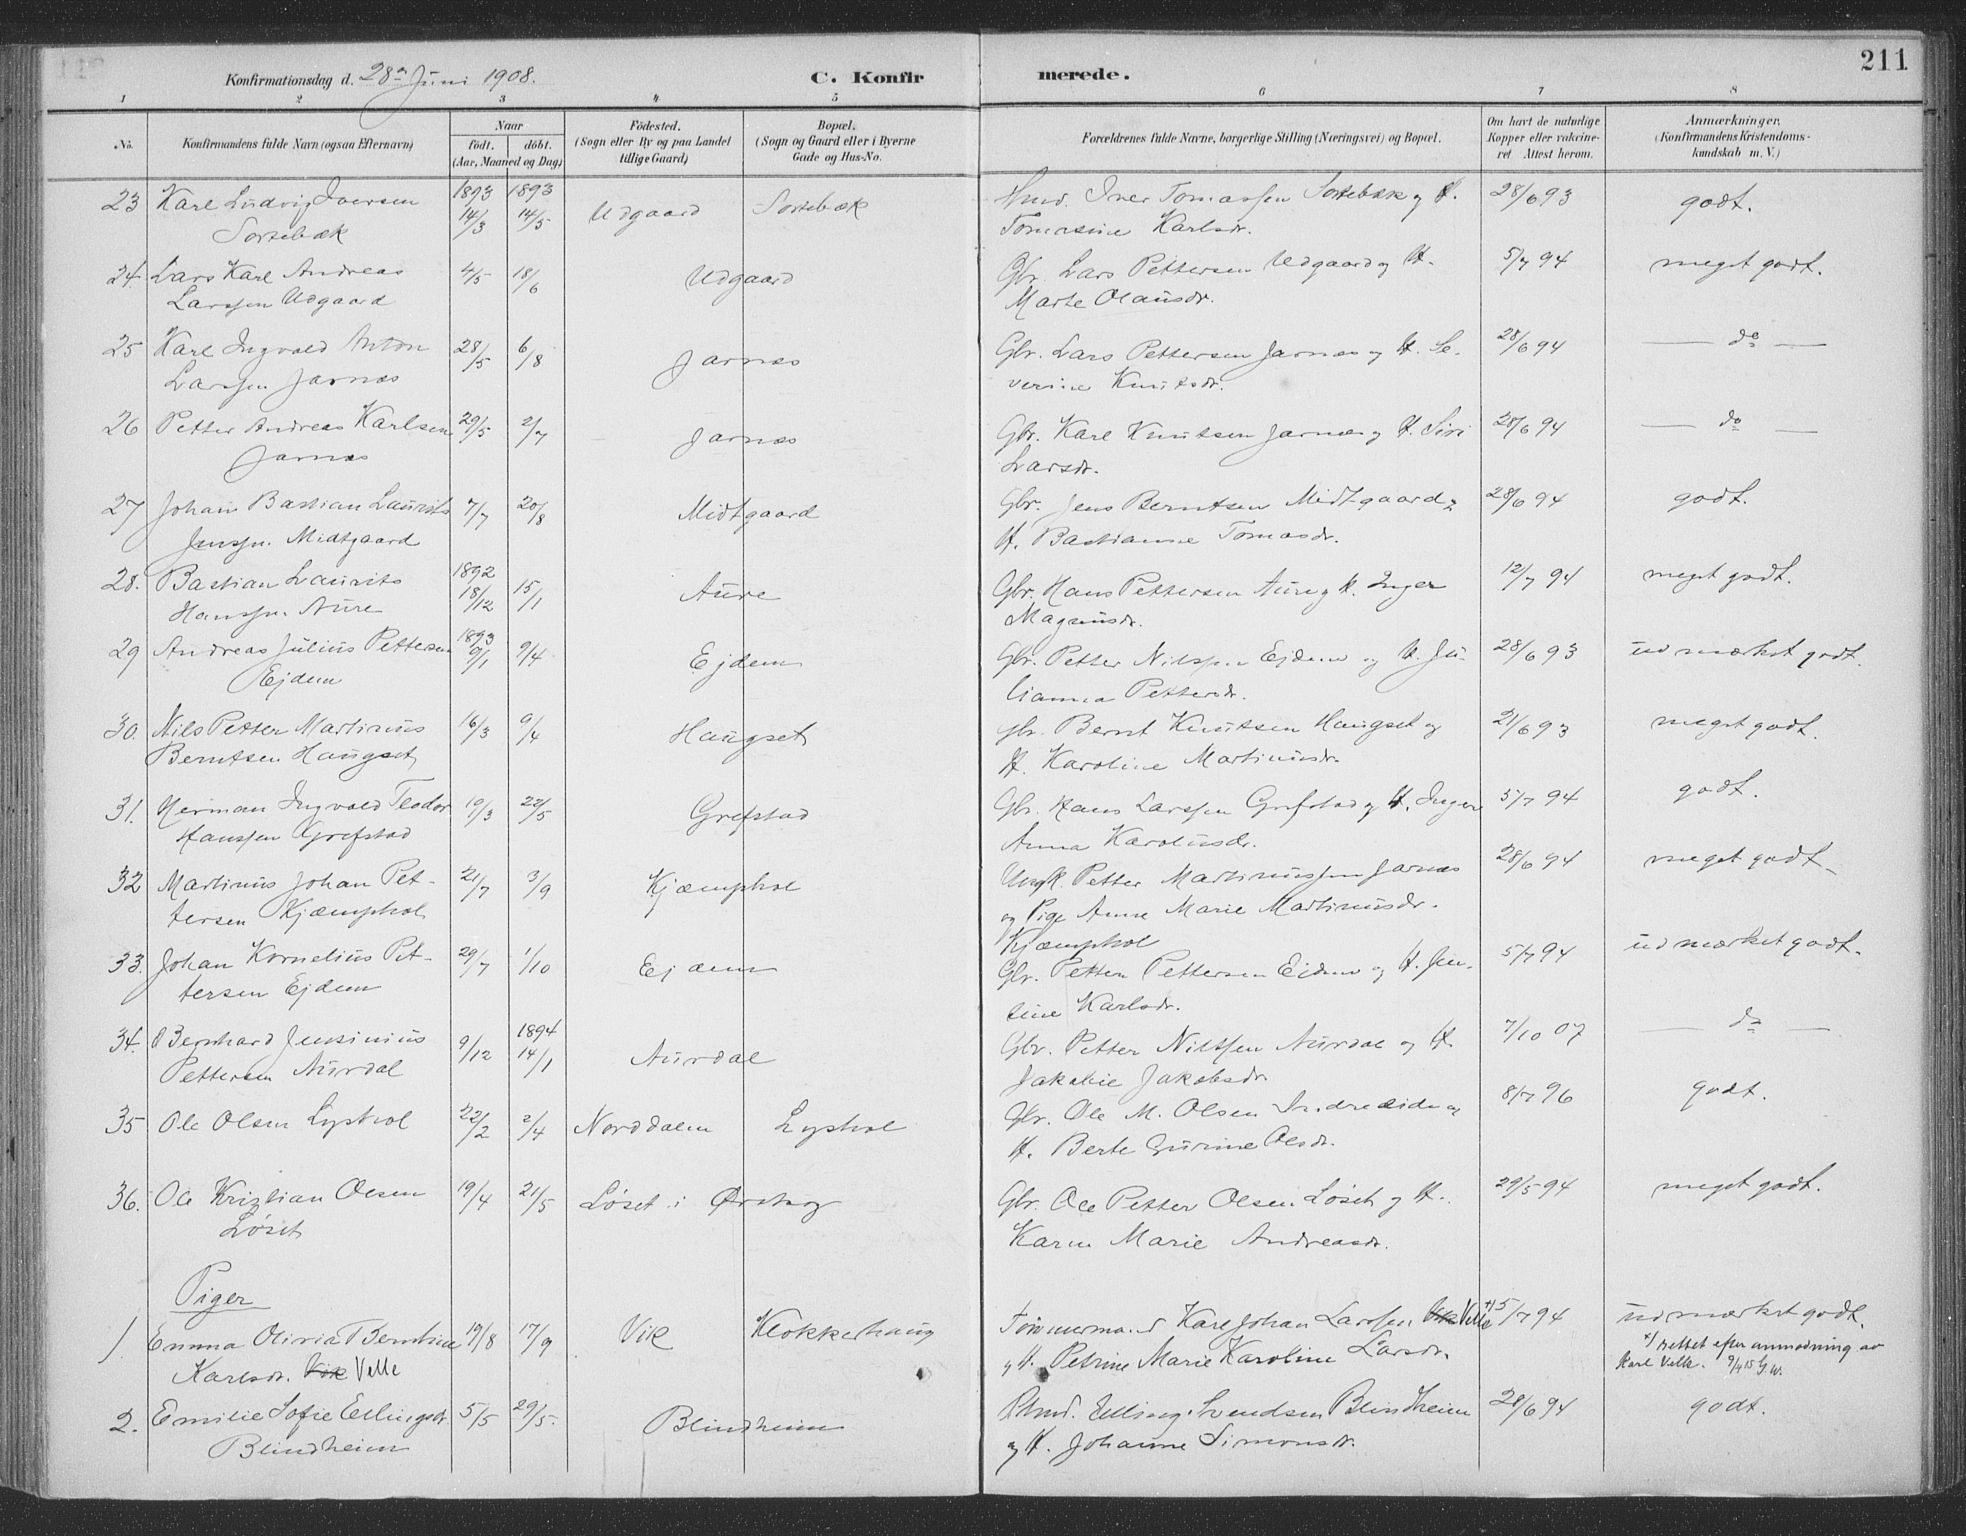 211
Konfirmationsdag d. 28de Juni 1908. C. Konfirmerede.
1 2 3 4 5 6 7 8
No. Konfirmandens fulde Navn (ogsaa Efternavn) Naar født. døbt. (Aar, Maaned og Dag) Fødested. (Sogn eller By og paa Landet tillige Gaard) Bopæl. (Sogn og Gaard eller i Byerne Gade og Hus-No. Forældrenes fulde Navne, borgerlige Stilling (Næringsvei) og Bopæl. Om havt de naturlige Kopper eller vakcineret Attest herom. Anmærkninger. (Konfirmandens Kristendomskundskab m. V.)
23 Karl Ludvig Iversen 1893 14/3 1893 14/5 Udgaard Sortebæk Hmd. Iver Tomassen Sortebæk og H. 28/6 93 godt.
Sortebæk Tomasine Karlsdr.
24. Lars Karl Andreas 4/5 18/6 Udgaard Gbr. Lars Pettersen Udgaard og H. 5/7 94 meget godt.
Larssen Udgaard Marte Olausdr.
25 Karl Ingvald Anton 28/5 6/8 Jarnæs Gbr. Lars Pettersen Jarnæs og H. Se- 28/6 94 — do —
Larssen Jarnæs verine Knutsdr.
26 Petter Andreas Karlsen 29/5 2/7 Jarnæs Gbr. Karl Knutsen Jarnæs og H. Siri 28/6 94 — do —
Jarnæs Larsdr.
27 Johan Bastian Laurits 7/7 20/8 Midtgaard Gbr. Jens Berntsen Midtgaard og 28/6 94 godt.
Jenssen Midtgaard H. Bastianne Tomasdr.
28. Bastian Laurits 1892 18/12 15/1 Aure Gbr. Hans Pettersen Aure og H. Inger 12/7 94 meget godt.
Hanssen Aure Magnusdr.
29 Andreas Julius Pettersen 1893 9/1 9/4 Ejdem Gbr. Petter Nilssen Ejdem og H. Ju- 28/6 93 udmærket godt.
Ejdem lianna Pettersdr.
30. Nils Petter Martinus 16/3 9/4 Haugset Gbr. Bernt Knutsen Haugset og 21/6 93 meget godt.
Berntsen Haugset H. Karoline Martinusdr.
31. Herman Ingvald Teodor 19/3 22/5 Grefstad Gbr. Hans Larssen Grefstad og H. Inger 5/7 94 godt.
Hanssen Grefstad Anna Karolusdr.
32 Martinus Johan Pet- 21/7 3/9 Kjæmphol Ungk. Petter Martinussen Jarnæs 28/6 94 meget godt.
tersen Kjæmphol og Pige Anne Marie Martinusdr.
Kjæmphol
33. Johan Kornelius Pet- 29/7 1/10 Ejdem Gbr. Petter Pettersen Ejdem og H. Jen- 5/7 94 udmærket godt.
tersen Ejdem sine Karlsdr.
34. Bernhard Jensinius 9/12 1894 14/1 Aurdal Gbr. Petter Nilssen Aurdal og H. 7/10 07 — do —
Pettersen Aurdal Jakobie Jakobsdr.
35 Ole Olsen Lyshol 22/2 2/4 Norddalen Lyshol Gbr. Ole M. Olsen Indreeide og 8/7 96 godt.
H. Berte Gurine Olsdr.
36. Ole Kristian Olsen 19/4 21/5 Løset i Ørskog Gbr. Ole Petter Olsen Løset og H. 29/5 94 meget godt.
Løset Karen Marie Andreasdr.
Piger
1. Emma Olivia Berntine 19/8 17/9 Vik Klokkerhaug Tømmermand Karl Johan Larssen Vik Velle +) 5/7 94 udmærket godt.
Karlsdr. Vik Velle og H. Petrine Marie Karoline Larsdr. +) rettet efter anmodning av
Karl Velle. 9/4 15 G.W.
2. Emilie Sofie Ellingsdr. 5/5 29/5. Blindheim Hmd. Elling Svendsen Blindheim 28/6 94 godt.
Blindheim og H. Johanne Simonsdr.